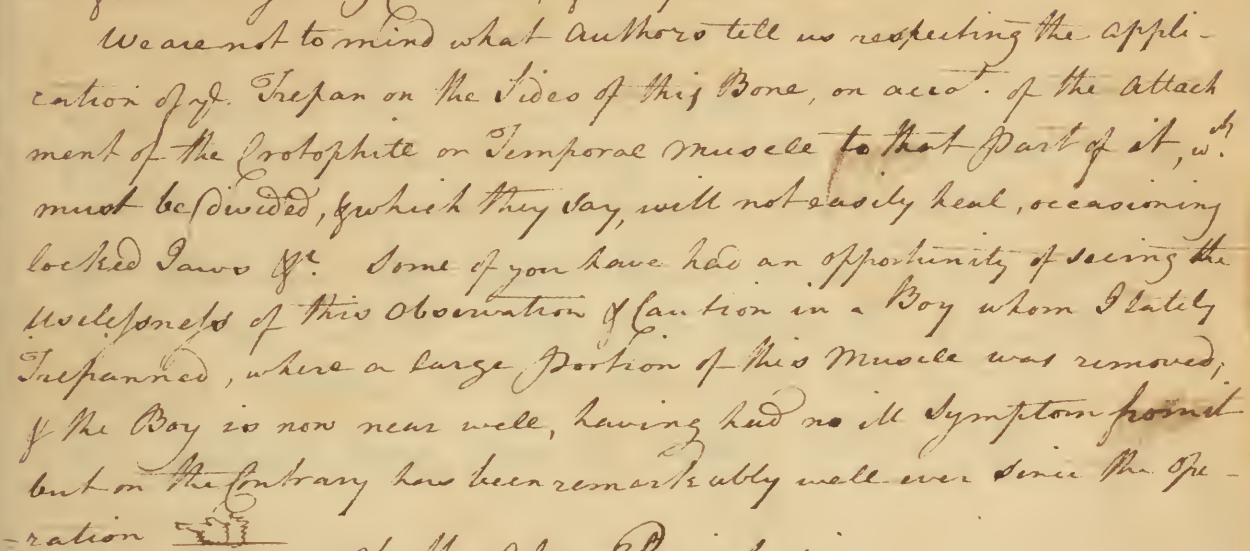 We are not to mind what Authors tell us respecting the appli-
cation of ye. Trepan on the Sides of this Bone, on acco.t of the Attach
ment of the Crotophite or Temporal Muscle to that Part of it, wch.
must be divided, & which they say, will not easily heal, occasioning
locked Jaws &c. Some of you have had an opportunity of seeing the
Uselessness of this Observation & Caution in a Boy whom I lately
Trepanned, where a large Portion of this Muscle was removed,
& the Boy is now near well, having had no ill Symptom from it
but on the Contrary has been remarkably well ever since the Ope-
-ration